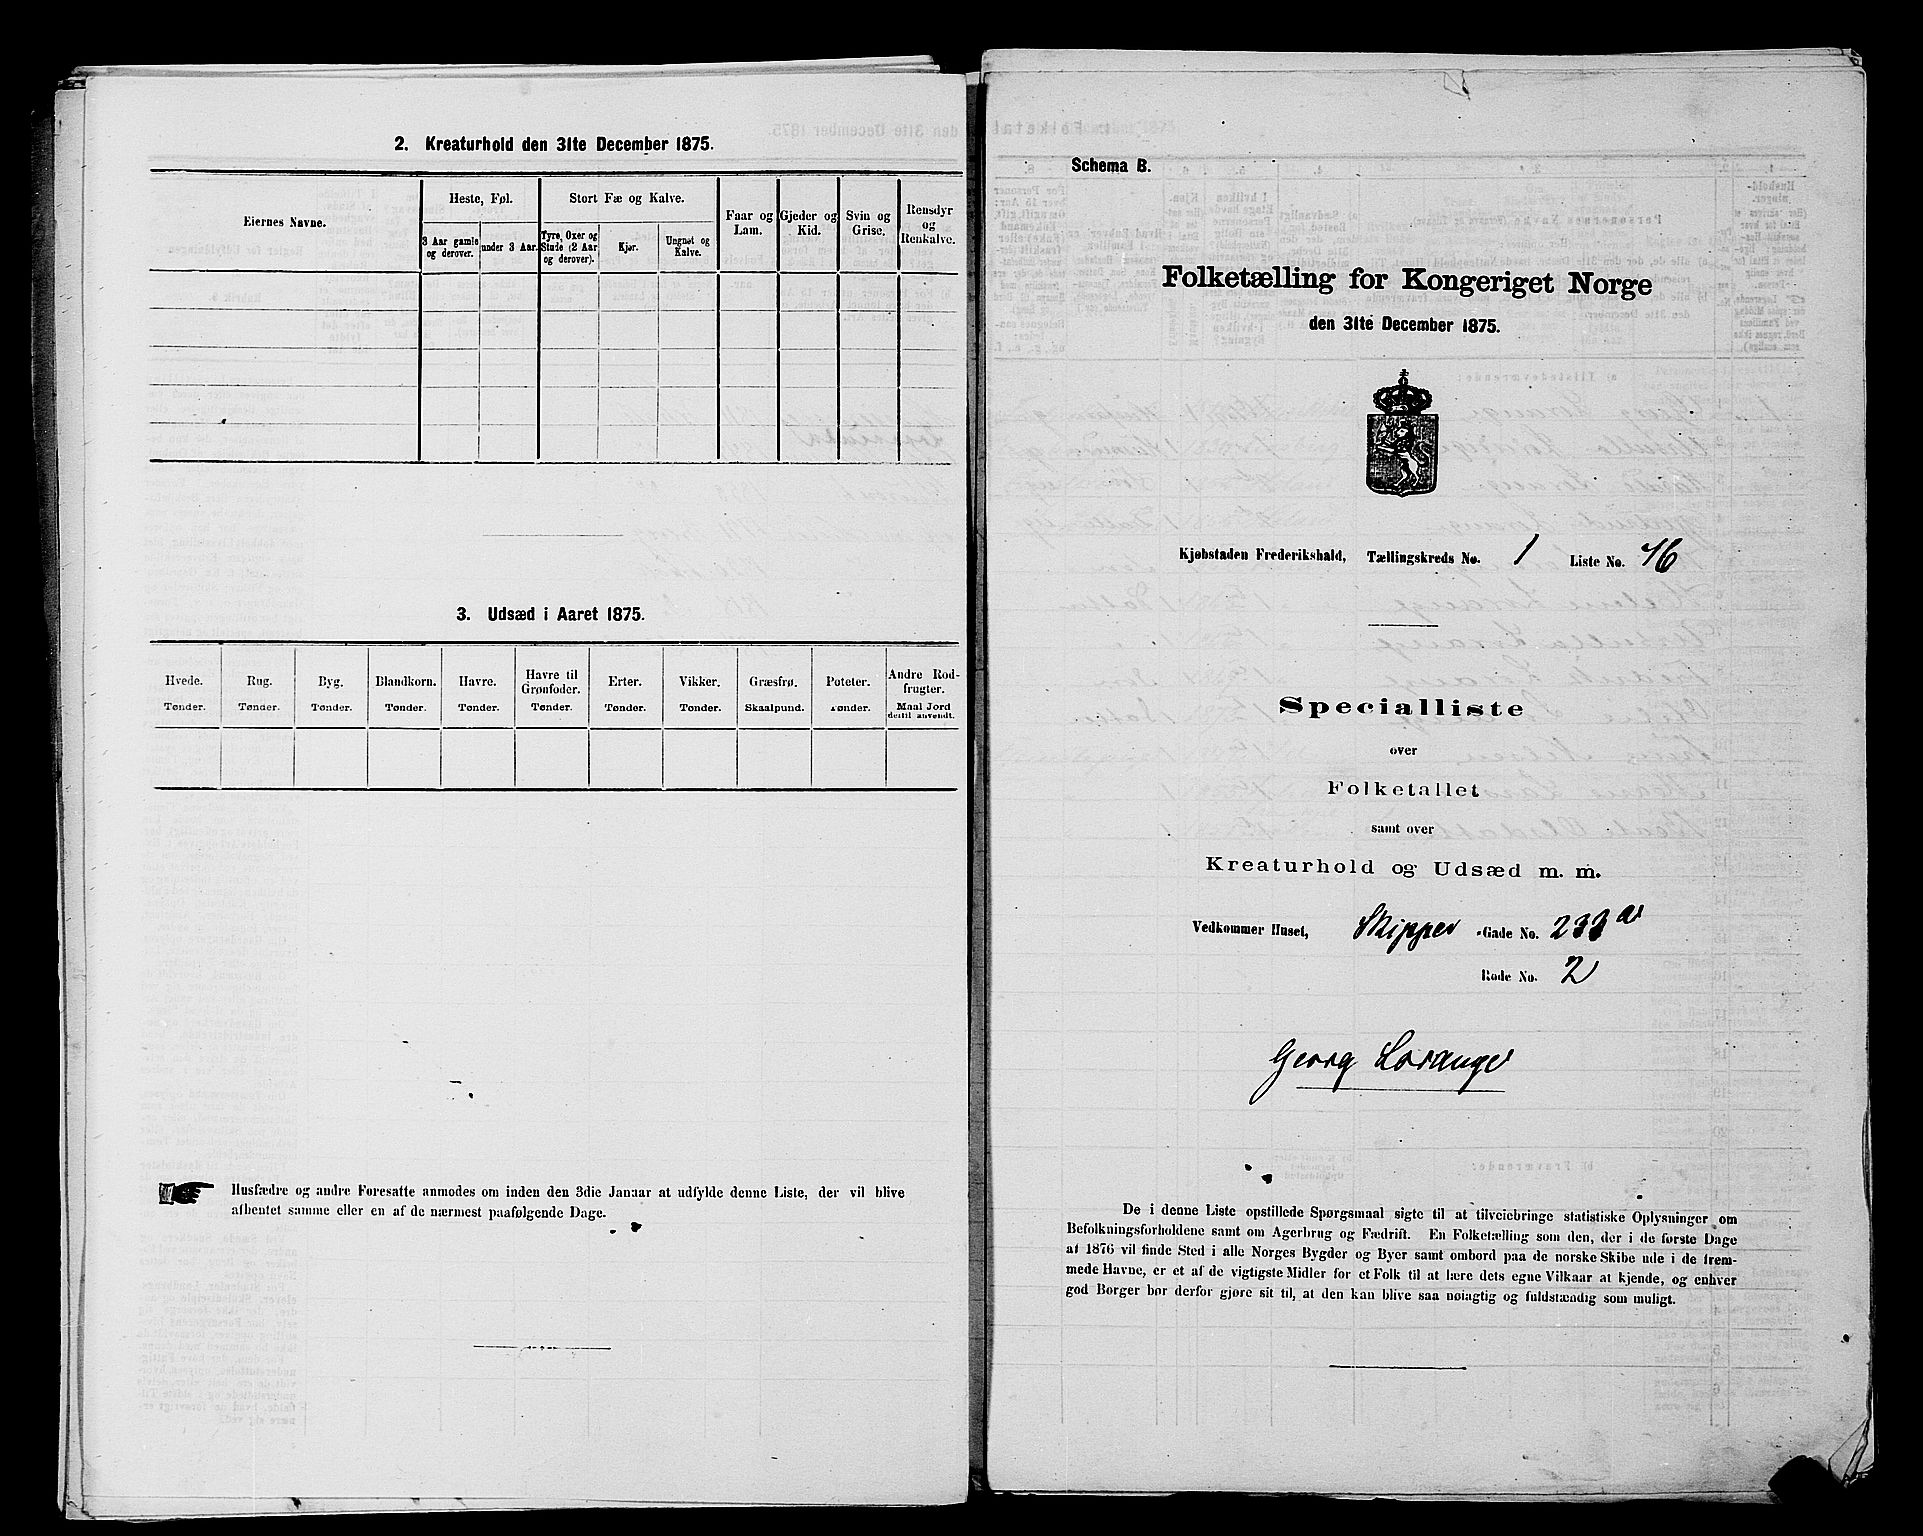 2. Kreaturhold den 31te December 1875.
Eiernes Navne.
Heste, Føl.
Stort Fæ og Kalve.
Faar og Lam.
Gjeder og Kid.
Svin og Grise.
Rensdyr og Renkalve.
3 Aar gamle og derover.
under 3 Aar.
Tyre, Oxer og Stude (2 Aar og derover).
Kjør.
Ungnøt og Kalve.
3. Udsæd i Aaret 1875.
Hvede. Rug. Byg. Blandkorn. Havre. Havre til Grønfoder. Erter. Vikker. Græsfrø. Poteter. Andre Rodfrugter.
Tønder. Tønder. Tønder. Tønder. Tønder. Tønder. Tønder. Tønder. Skaalpund. Tønder. Maal Jord dertil anvendt.
Husfædre og andre Foresatte anmodes om inden den 3die Januar at udfylde denne Liste, der vil blive
afhentet samme eller en af de nærmest paafølgende Dage.
Schema B.
Folketælling for Kongeriget Norge
den 31te December 1875.
Kjøbstaden Frederikshald, Tællingskreds No. 1 Liste No. 46
Specialliste
over
Folketallet
samt over
Kreaturhold og Udsæd m. m.
Vedkommer Huset, Skipper -Gade No. 233 a
Rode No. 2
Georg Lorange
De i denne Liste opstillede Spørgsmaal sigte til at tilveiebringe statistiske Oplysninger om
Befolkningsforholdene samt om Agerbrug og Fædrift. En Folketælling som den, der i de første Dage
af 1876 vil finde Sted i alle Norges Bygder og Byer samt ombord paa de norske Skibe ude i de frem-
mede Havne, er et af de vigtigste Midler for et Folk til at lære dets egne Vilkaar at kjende, og enhver
god Borger bør derfor gjøre sit til, at den kan blive saa nøiagtig og fuldstændig som muligt.